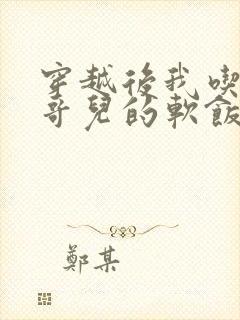 穿越後我喫
哥兒的軟飯
鄭某